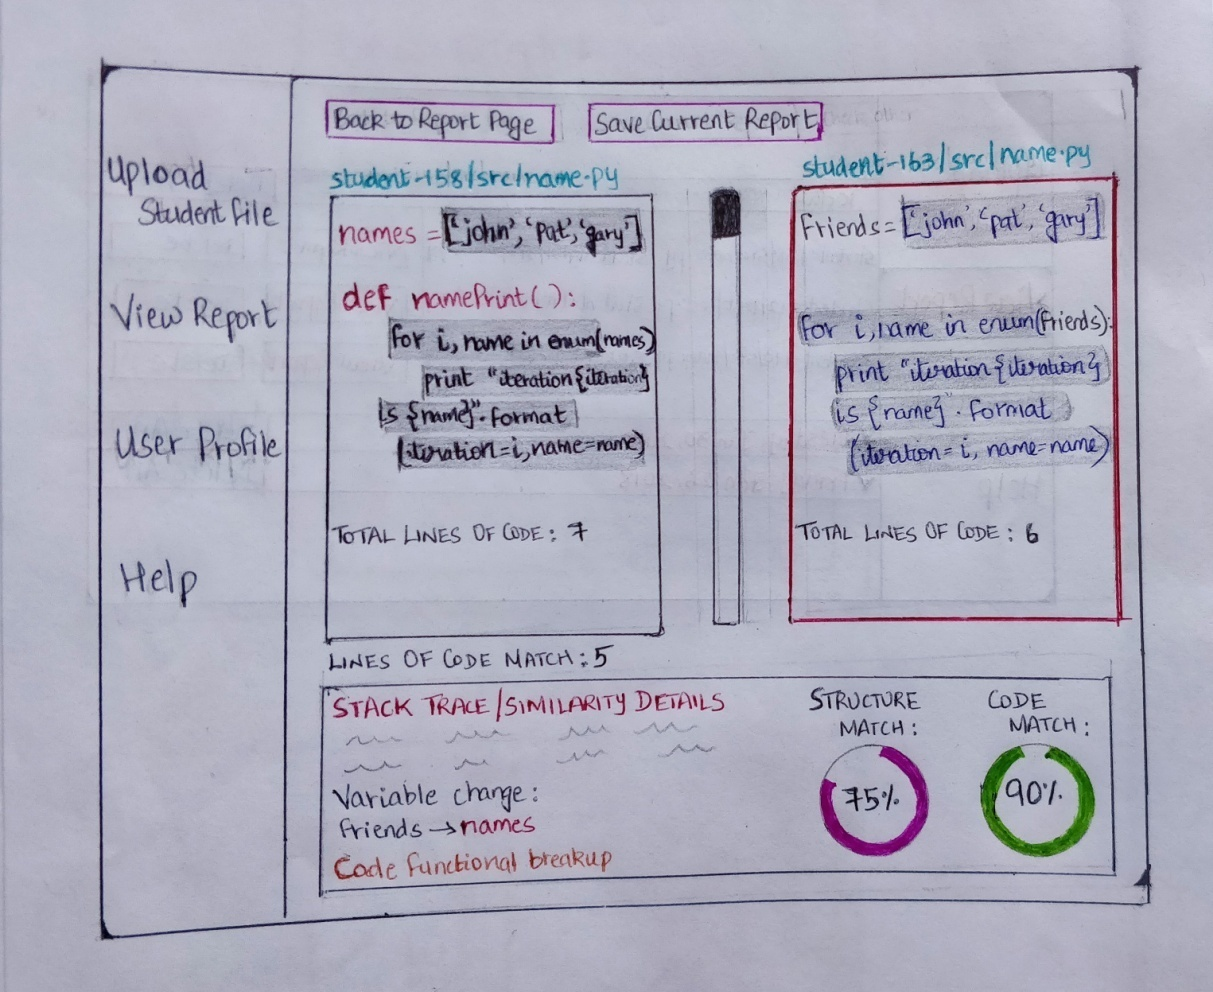 Back to Report Page
Save Current Report
Upload
Student File
View Report
User Profile
Help
student-158/src/name.py
names = ['john', 'pat', 'gary']
def namePrint():
for i, name in enum(names)
print "iteration {iteration}
is {name}". format
(iteration=i, name=name)
TOTAL LINES OF CODE: 7
student-163/src/name.py
Friends = ['john', 'pat', 'gary']
for i, name in enum(friends):
print "iteration {iteration}
is {name}. format
(iteration= i, name=name)
TOTAL LINES OF CODE: 6
LINES OF CODE MATCH: 5
STACK TRACE/SIMILARITY DETAILS
Variable change:
Friends → names
Code functional breakup
STRUCTURE
MATCH:
75%
CODE
MATCH:
90%